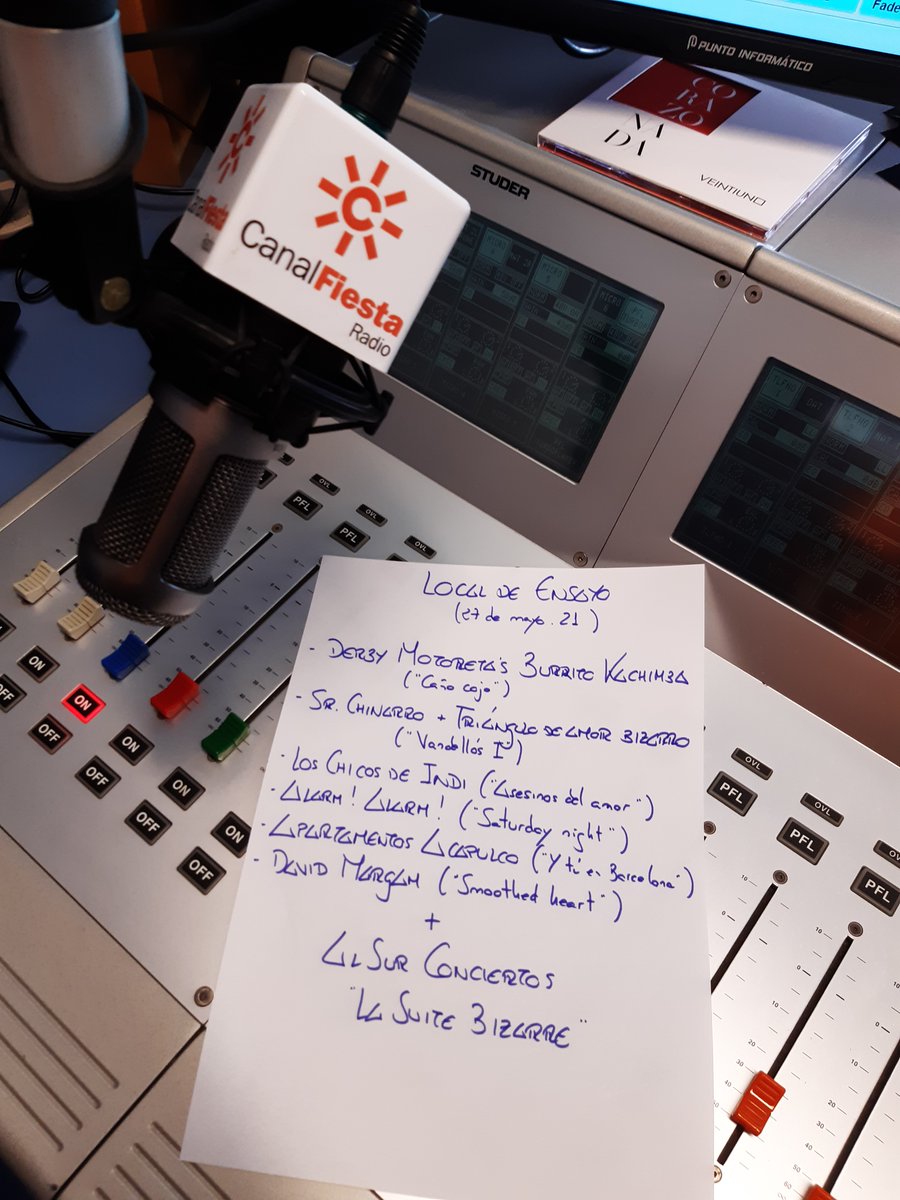 Fade
PUNTO INFORMÁTICO
CO
RA
ZO
NA
DA
VEINTIUNO
STUDER
C
CanalFiesta
Radio
OVL
PFL
OVL
PFL
OVL
ON
OFF
ON
OFF
ON
OFF
ON
OFF
ON
OFF
LOCAL DE ENSAYO
(27 de mayo. 21)
- DERBY MOTORETA'S BURRITO KACHIMBA
("Caño cojo")
- SR. CHINARRO + TRIÁNGULO DE AMOR BIZARRO
("Vandellós I")
- LOS CHICOS DE INDI ("Asesinos del amor")
- ALARM! ALARM! ("Saturday night")
- APARTAMENTOS ACAPULCO ("Y tú en Barcelona")
- DAVID MARGAM ("Smoothed heart")
+
AL SUR CONCIERTOS
"LA SUITE BIZARRE"
OVL
PFL
OVL
PFL
PFL